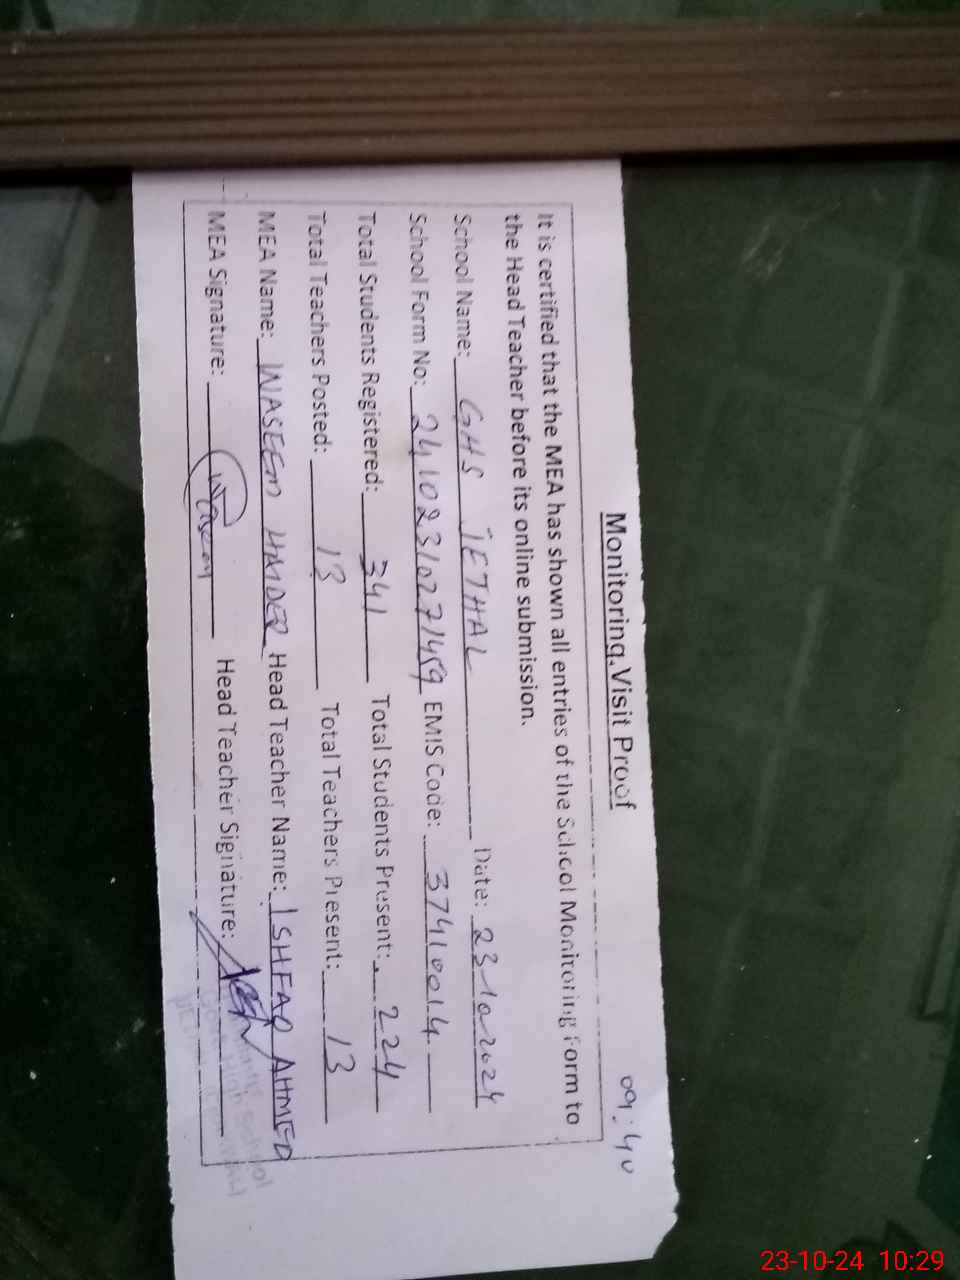 09:40
Monitoring Visit Proof
It is certified that the MEA has shown all entries of the School Monitoring Form to
the Head Teacher before its online submission.
School Name: GHS JETHAL Date: 23-10-2024
School Form No: 24102310271459 EMIS Code: 37410014
Total Students Registered: 341 Total Students Present: 224
Total Teachers Posted: 13 Total Teachers Present: 13
MEA Name: WASEEM HAIDER Head Teacher Name: ISHFAQ AHMED
MEA Signature: Waseem Head Teacher Signature:
High School
23-10-24 10:29